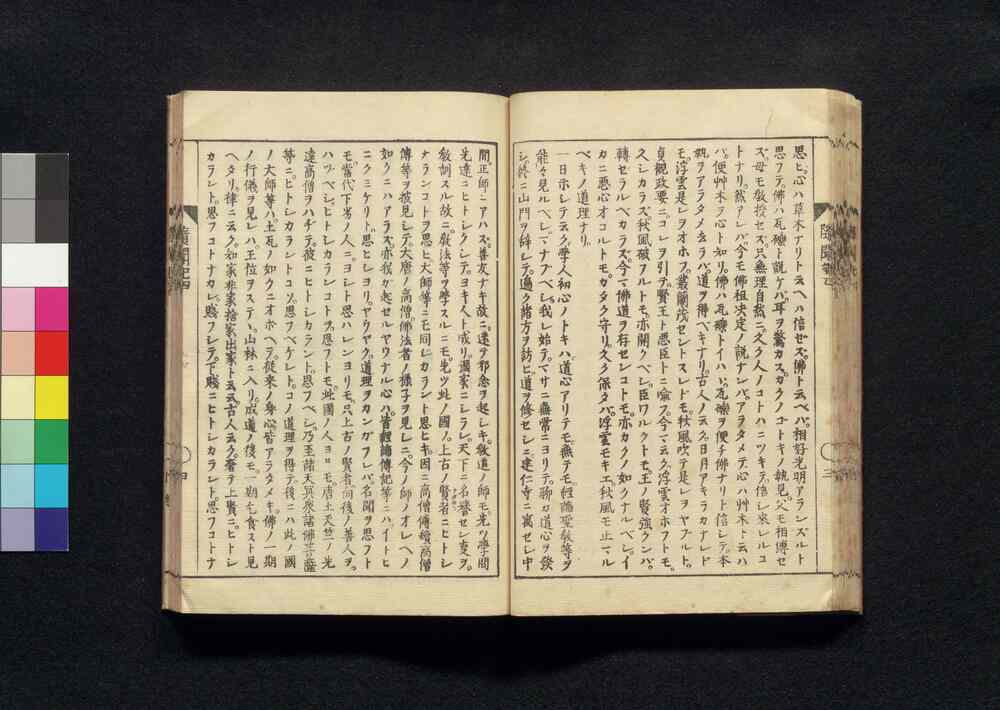 思ヒ。心ハ草木ナリト云ヘハ信ゼズ。佛ト云ベバ。相好光明アランズルト
思フテ。佛ハ瓦礫ト説ケバ。耳ヲ驚カス。カクノコトキノ執見。父モ相傳セ
ズ。母モ敎授セズ。只無理自然ニ。久ク人ノコトハニツキテ。信シ來レルコ
トナリ。然アレバ。今モ佛祖決定ノ説ナレバ。アラタメテ。心ハ艸木ト云ハ
バ。便艸木ヲ心ト知リ。佛ハ瓦礫トイハヽ。瓦礫ヲ便チ佛ナリト信シテ。本
執ヲアラタメ去ラバ。道ヲ得ベキナリ。古人ノ云ク。日月アキラカナレド
モ。浮雲是レヲオホフ。叢蘭茂セントスレドモ。秋風吹テ是レヲヤブルト。
貞觀政要ニコレヲ引テ。賢王ト悪臣トニ喩フ。今マ云ク。浮雲オホフトモ。
久シカラズ。秋風破フルトモ。亦開クベシ。臣ワルクトモ。王ノ賢強クンバ。
轉セラルベカラズ。今マ佛道ヲ存センコトモ。亦カクノ如クナルベシ。イ
カニ悪心オコルトモ。カタク守リ。久ク保タバ。浮雲モキエ。秋風モ止マル
ベキノ道理ナリ。
一日ホシテ云ク。學人初心ノトキハ。道心アリテモ無テモ。經論聖敎等ヲ
能々見ルヘシ。マナブヘシ。我レ始テ。マサニ無常ニヨリテ。聊カ道心ヲ發
シ。終ニ山門ヲ辭シテ。遍ク諸方ヲ訪ヒ。道ヲ修セシニ。建仁寺ニ寓セシ中
間。正師ニアハズ。善友ナキ故ニ。迷テ邪念ヲ起シキ。敎道ノ師モ。先ツ學問
先達ニヒトシクシテヨキ人ト成リ。國家ニシラレ。天下ニ名譽セン叓ヲ。
敎訓スル故ニ。敎法等ヲ學スルニモ。先ツ此ノ國ノ。上古ノ賢者ニヒトシ
ナランコトヲ思ヒ。大師等ニモ同シカラント思ヒキ。因ニ高僧傳。續高僧
傳等ヲ披見シテ。大唐ノ高僧佛法者ノ様子ヲ見シニ。今ノ師ノオシヘノ
如クニハアラズ。亦我カ起セルヤウナル心ハ。皆經論傳記等ニハイトヒ
ニクミケリト思ヒシヨリ。ヤウヤク道理ヲカンガフレバ。名聞ヲ思フト
モ。當代下劣ノ人ニ。ヨシト思ハレンヨリモ。只上古ノ賢者。向後ノ善人ヲ。
ハヅベシ。ヒトシカランコトヲ思フトモ。此國ノ人ヨリモ。唐土天竺ノ先
達高僧ヲハヂテ。彼ニヒトシカラント思フベシ。乃至諸天冥衆諸佛菩薩
等ニ。ヒトシカラントコソ思フベケレト。コノ道理ヲ得テ後ニハ。此ノ國
ノ大師等ハ。土瓦ノ如クニオホヘテ。從來ノ身心。皆アラタメキ。佛ノ一期
ノ行儀ヲ見レハ。王位ヲステヽ。山林ニ入リ。成道ノ後モ。一期乞食スト見
ヘタリ。律ニ云ク。知家非家。捨家出家ト云云。古人云ク。奢テ上賢ニヒトシ
カラント。思フコトナカレ。賤フシテ下賤ニヒトシカラント思フコトナ
隨聞記四
四
隨聞記四
三